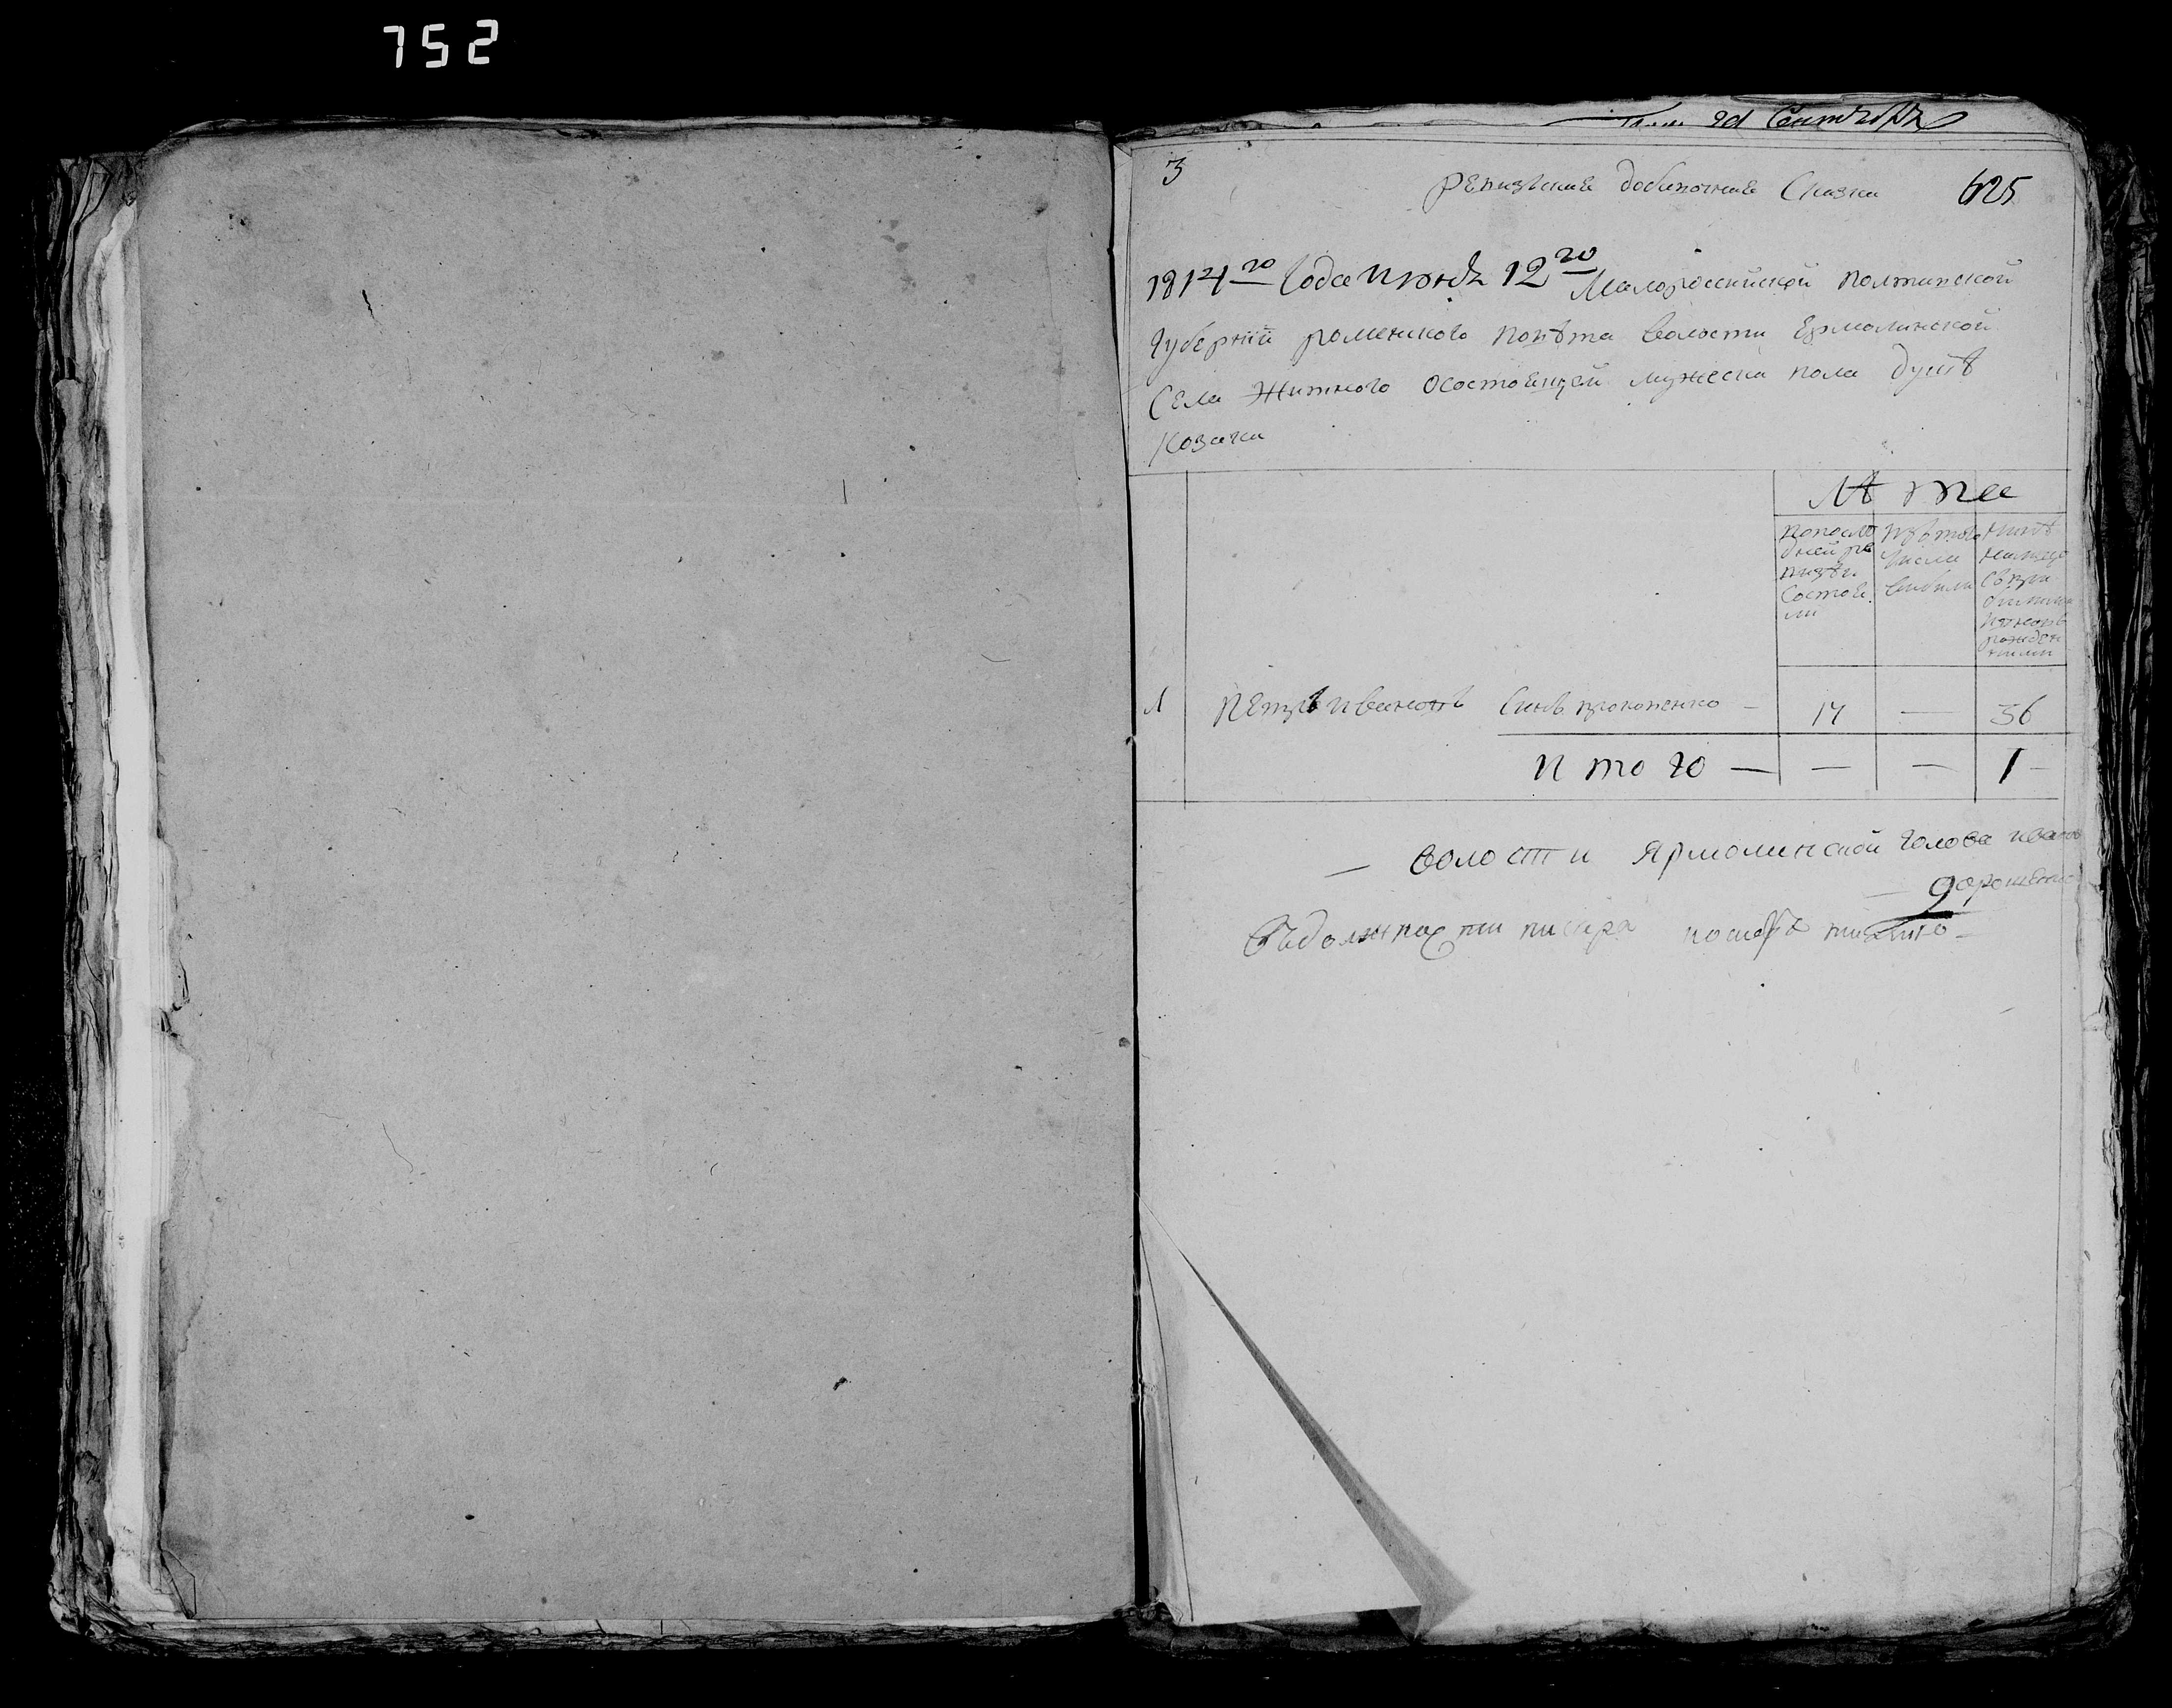 752
Сентября
3
Ревизские добавочние Сказки 625
1814го Года июня 12го Малороссийской полтавской
Губернии роменского повѣта волости Ермолинской
Села Житного осостоящей мужеска пола душѣ
Козака
Лѣта
попослѣ
дней ре
визѣи
состоя
ли
изътого
числа
вибили
нинѣ
налицо
ли
1 Петръ ивановъ Синъ прокопенко — 14 — 36
итого — — — 1 —
— волости Ярмолинской голова иванъ
— дорошенко
Въдолжности писара